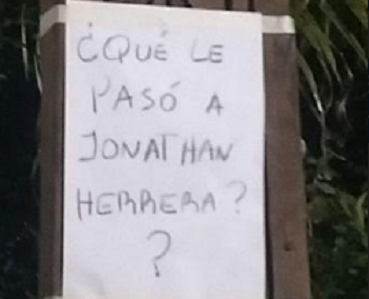 ¿QUÉ LE
PASÓ A
JONATHAN
HERRERA?
?